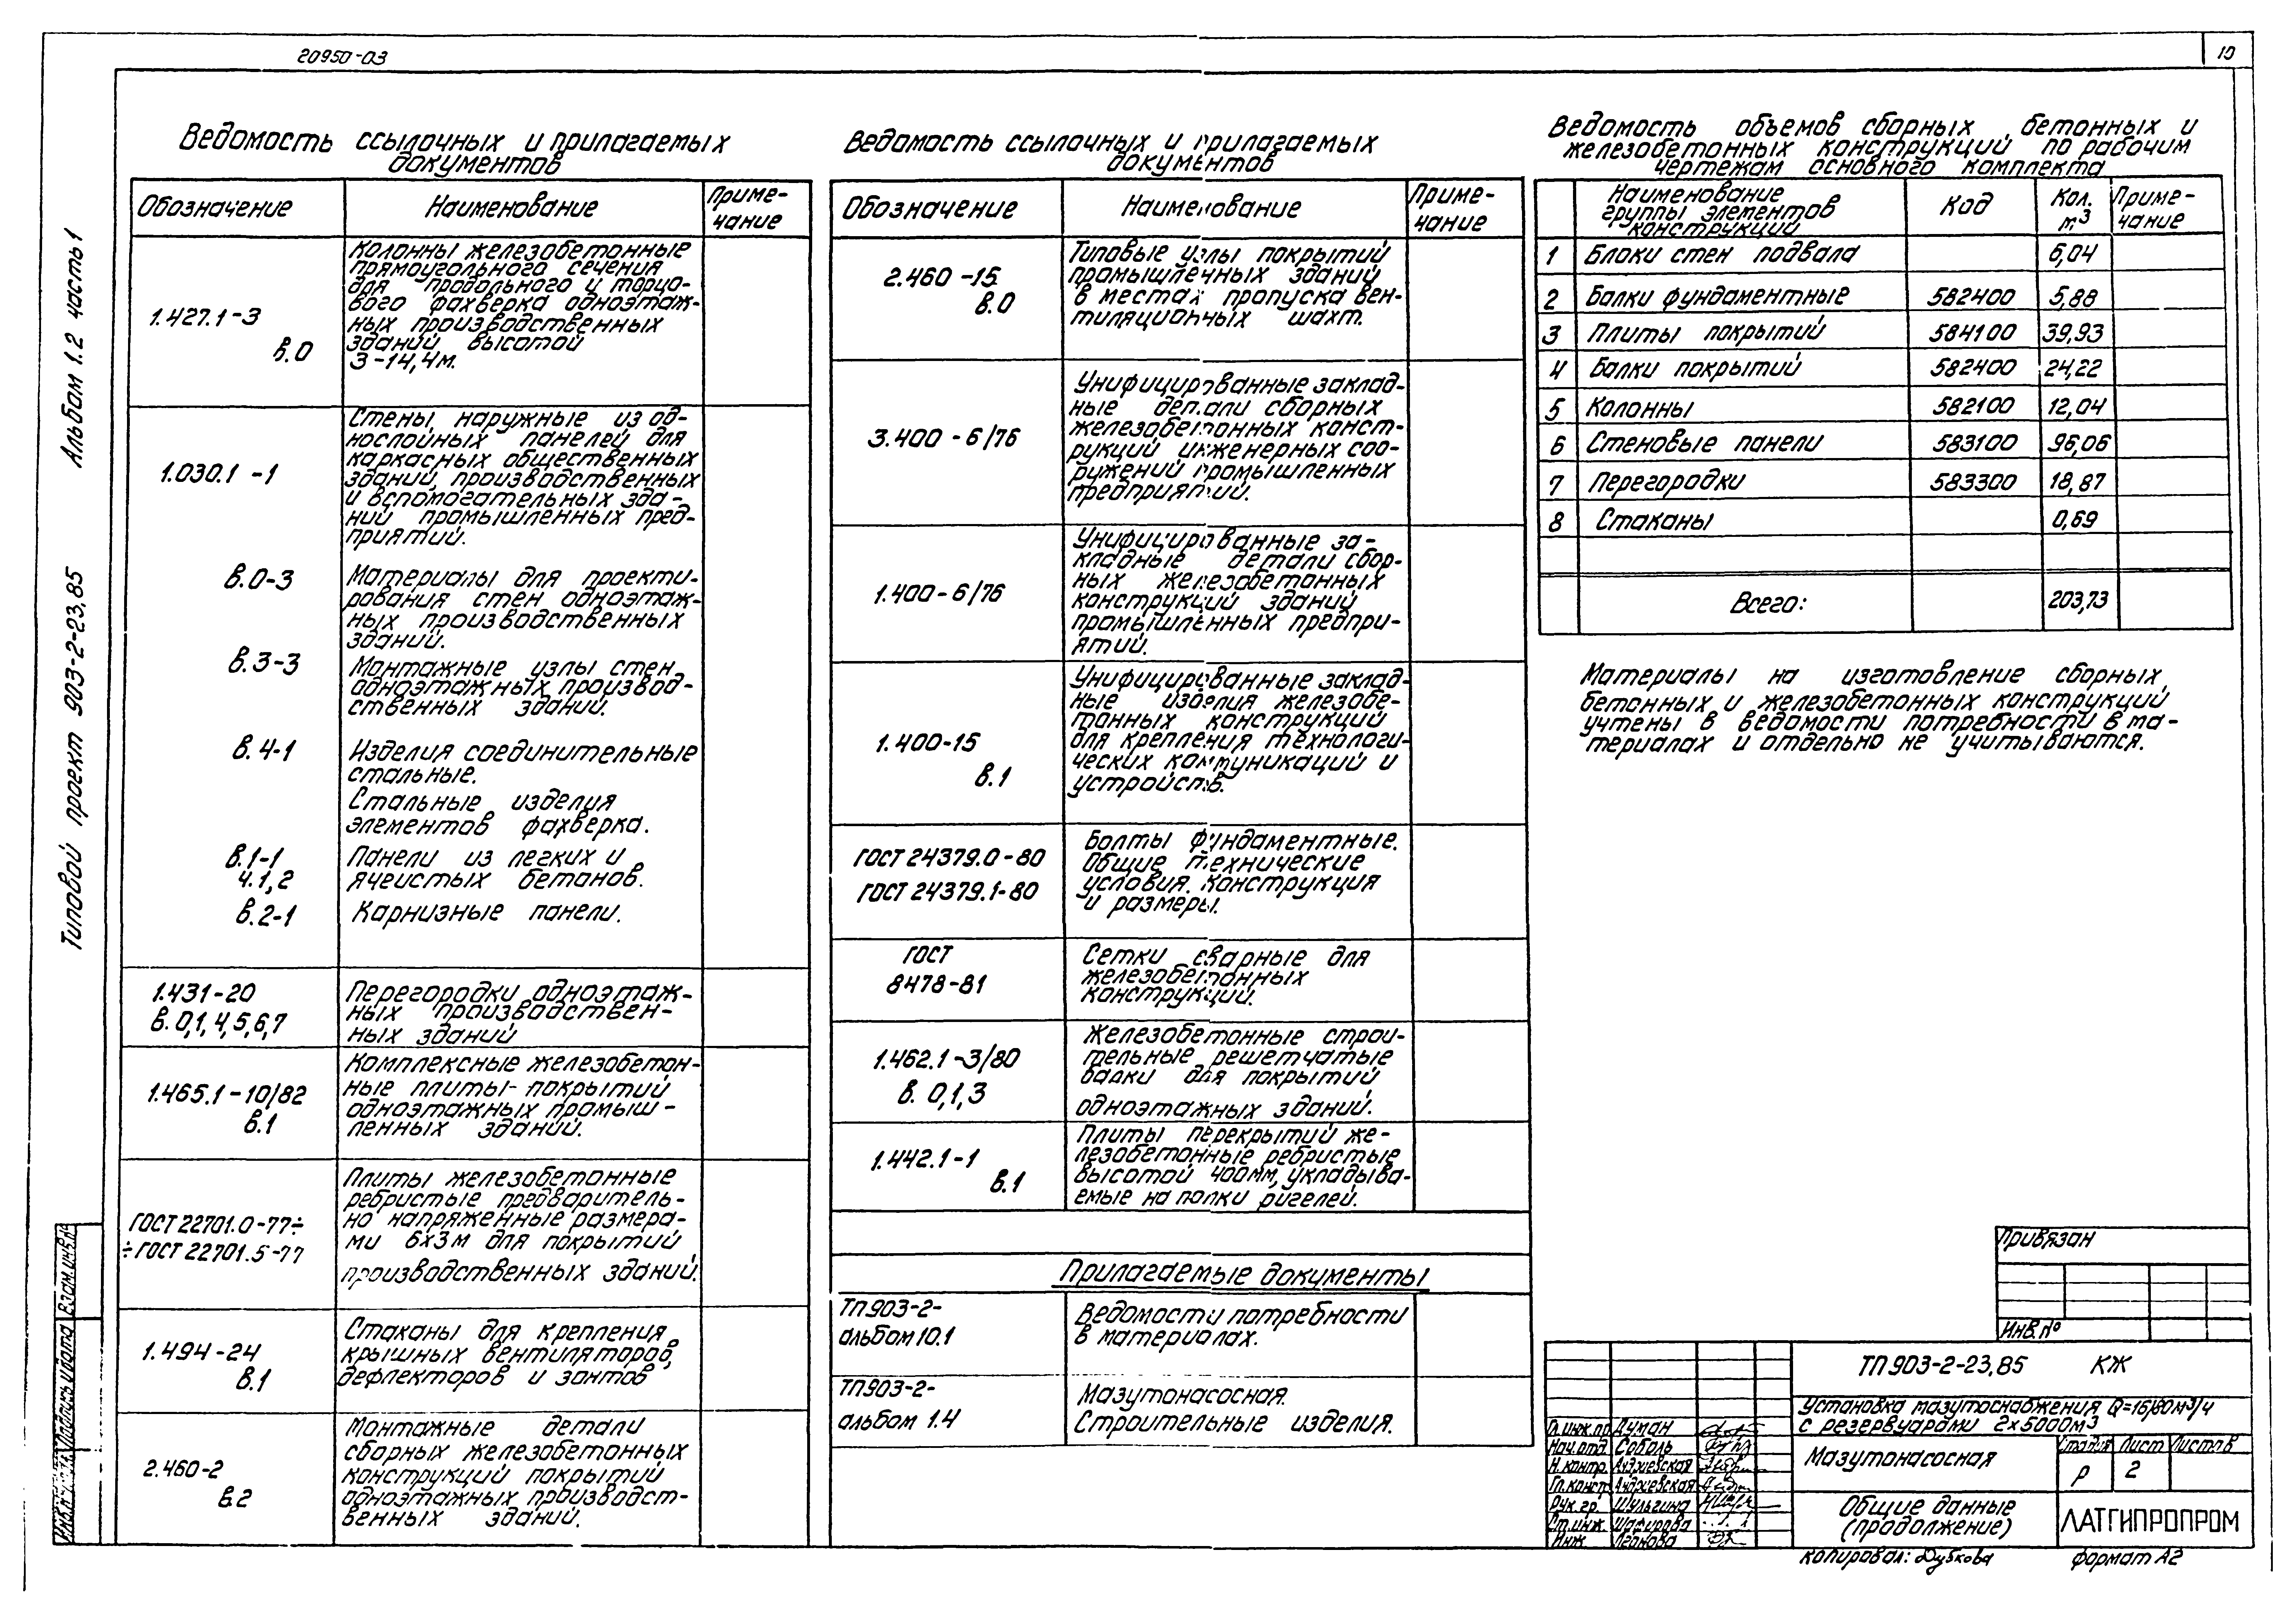 20950-03
10
Альбом 1.2 часть 1
Типовой проект 903-2-23.85
Ведомость ссылочных и прилагаемых
документов
Обозначение Наименование Приме-
чание
1.427.1-3
в.0
Колонны железобетонные
прямоугольного сечения
для продольного и торцо-
вого фахверка одноэтаж-
ных производственных
зданий высотой
3-14,4м.
1.030.1-1
Стены наружные из од-
нослойных панелей для
каркасных общественных
зданий, производственных
и вспомогательных зда-
ний промышленных пред-
приятий.
в.0-3
Материалы для проекти-
рования стен одноэтаж-
ных производственных
зданий.
в.3-3
Монтажные узлы стен
одноэтажных производ-
ственных зданий.
в.4-1
Изделия соединительные
стальные.
Стальные изделия
элементов фахверка.
в.1-1
ч.1,2
Панели из легких и
ячеистых бетонов.
в.2-1 Карнизные панели.
1.431-20
в. 0,1,4,5,6,7
Перегородки одноэтаж-
ных производствен-
ных зданий
1.465.1-10/82
в.1
Комплексные железобетон-
ные плиты покрытий
одноэтажных промыш-
ленных зданий.
ГОСТ 22701.0-77÷
÷ГОСТ 22701.5-77
Плиты железобетонные
ребристые предваритель-
но напряженные размера-
ми 6х3м для покрытий
производственных зданий.
1.494-24
в.1
Стаканы для крепления
крышных вентиляторов,
дефлекторов и зонтов
2.460-2
в.2
Монтажные детали
сборных железобетонных
конструкций покрытий
одноэтажных производст-
венных зданий.
Ведомость ссылочных и прилагаемых
документов
Обозначение Наименование Приме-
чание
2.460-15
в.0
Типовые узлы покрытий
промышленных зданий
в местах пропуска вен-
тиляционных шахт.
3.400-6/76
Унифицированные заклад-
ные детали сборных
железобетонных конст-
рукций инженерных соо-
ружений промышленных
предприятий.
1.400-6/76
Унифицированные за-
кладные детали сбор-
ных железобетонных
конструкций зданий
промышленных предпри-
ятий.
1.400-15
в.1
Унифицированные заклад-
ные изделия железобе-
тонных конструкций
для крепления технологи-
ческих коммуникаций и
устройств.
ГОСТ 24379.0-80
ГОСТ 24379.1-80
Болты фундаментные.
Общие технические
условия. Конструкция
и размеры.
ГОСТ
8478-81
Сетки сварные для
железобетонных
конструкций.
1.462.1-3/80
в. 0,1,3
Железобетонные строи-
тельные решетчатые
балки для покрытий
одноэтажных зданий.
1.442.1-1
в.1
Плиты перекрытий же-
лезобетонные ребристые
высотой 400мм, укладыва-
емые на полки ригелей.
Прилагаемые документы
ТП903-2-
альбом 10.1
Ведомости потребности
в материалах.
ТП903-2-
альбом 1.4
Мазутонасосная.
Строительные изделия.
Ведомость объемов сборных бетонных и
железобетонных конструкций по рабочим
чертежам основного комплекта
Наименование
группы элементов
конструкций
Код Кол.
м3
Приме-
чание
1 Блоки стен подвала 6,04
2 Балки фундаментные 582400 5,88
3 Плиты покрытий 584100 39,93
4 Балки покрытий 582400 24,22
5 Колонны 582100 12,04
6 Стеновые панели 583100 96,06
7 Перегородки 583300 18,87
8 Стаканы 0,69
Всего: 203,73
Материалы на изготовление сборных
бетонных и железобетонных конструкций
учтены в ведомости потребности в ма-
териалах и отдельно не учитываются.
Привязан
Инв.№
ТП 903-2-23.85 КЖ
Установка мазутоснабжения Q=16/80м3/ч
с резервуарами 2х5000м3
Мазутонасосная
Стадия Лист Листов
Р 2
Общие данные
(продолжение)
ЛАТГИПРОПРОМ
Гл.инж.пр. Думан
Нач.отд. Соболь
Н.контр. Анджевская
Гл.констр. Анджевская
Рук.гр. Шульгина
Ст.инж. Шафирова
Инж.
Взам.инв.№
Подпись и дата
копировал: Дубкова
формат А2